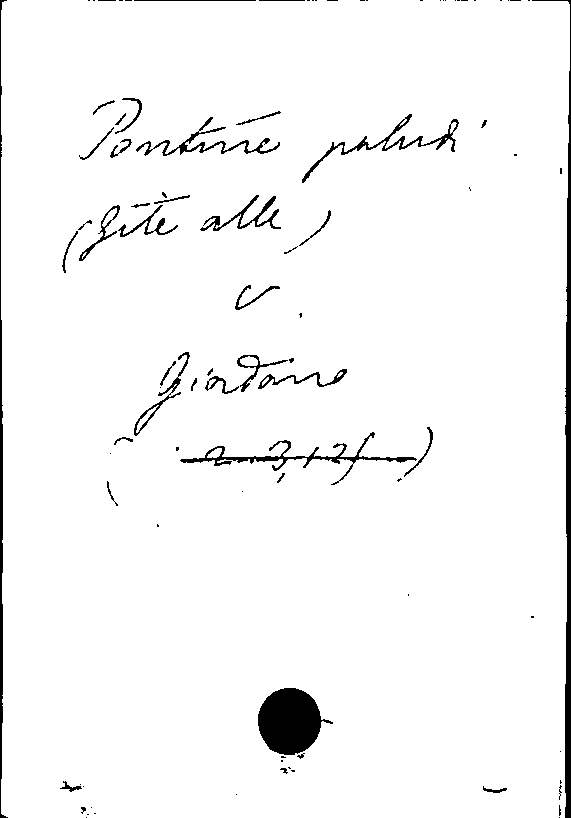 Pontine paludi
(Gite alle)
V.
Giordano